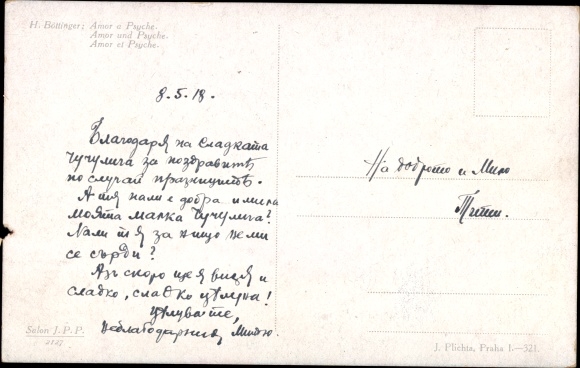 H. Böttinger: Amor a Psyche.
Amor und Psyche.
Amor et Psyche.
8.5.18.
Благодаря на сладката
чучулига за поздравитѣ
по случай празницитѣ.
А тя нали е добра и мила
моята малка чучулига?
Нали тя за нищо не ми
се сърди?
Азъ скоро ще я видя и
сладко, сладко цѣлуна!
Цѣлувате,
неблагодарния Митю.
На доброто и Мило
Титти.
Salon J. P. P.
2127
J. Plichta, Praha I.—321.